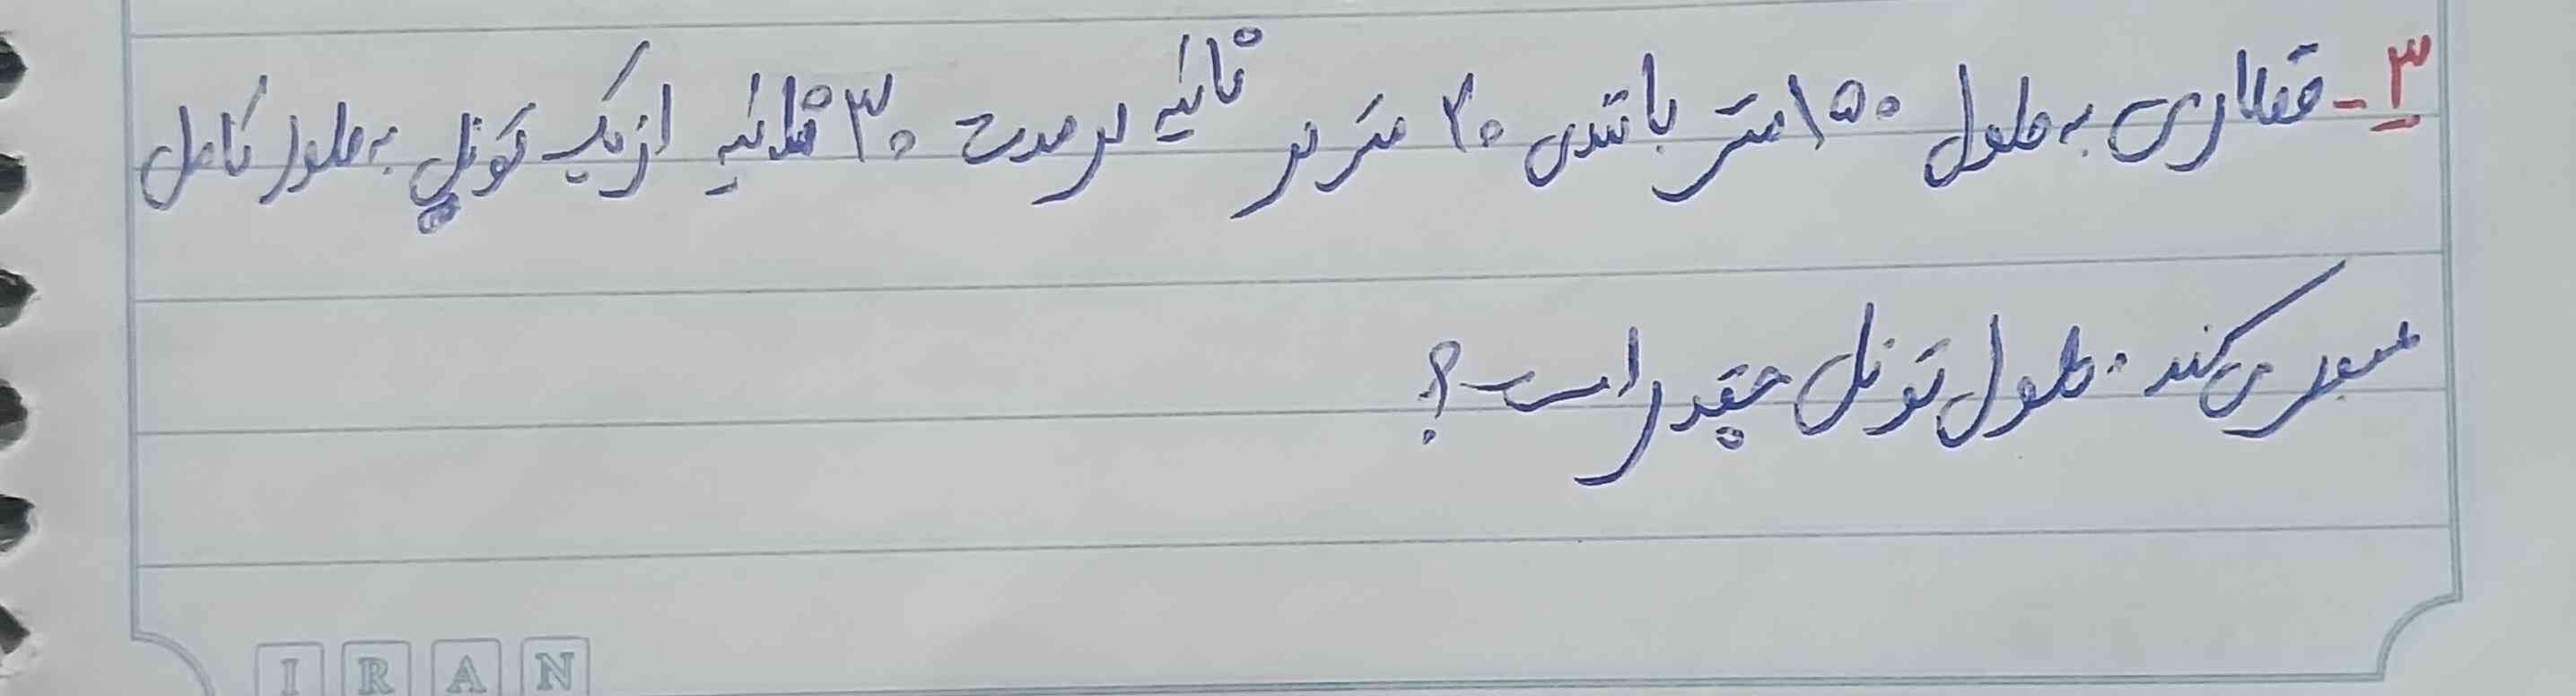 ۳- قطاری به طول ۱۵۰ متر با تندی ۲۰ متر بر ثانیه در مدت ۳۰ ثانیه از یک تونل به طور کامل
عبور می‌کند. طول تونل چقدر است؟
IRAN